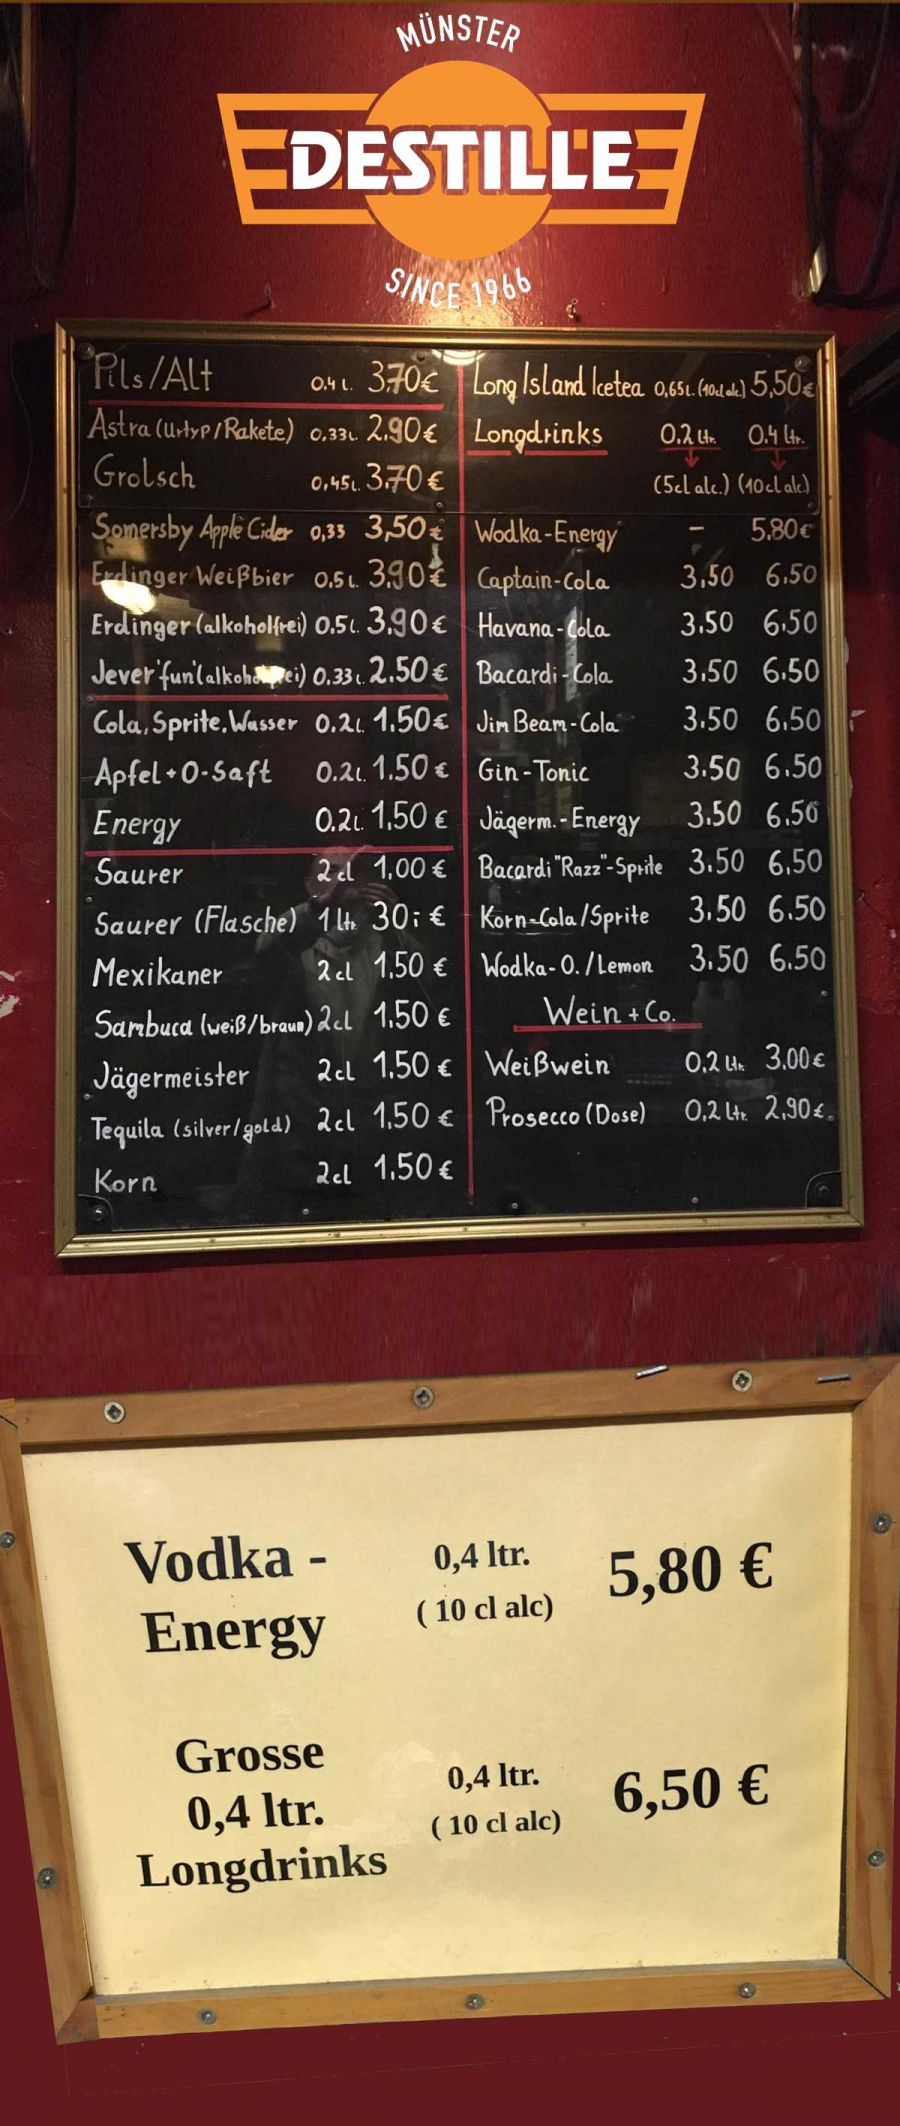 MÜNSTER
DESTILLE
SINCE 1966
Pils/Alt 0.4 l. 3,70€
Astra (Urtyp/Rakete) 0.33l. 2.90€
Grolsch 0,45l. 3.70€
Somersby Apple Cider 0,33 3,50€
Erdinger Weißbier 0.5l. 3.90€
Erdinger (alkoholfrei) 0.5l. 3.90€
Jever 'fun' (alkoholfrei) 0.33l. 2.50€
Cola, Sprite, Wasser 0.2l. 1.50€
Apfel + O-Saft 0.2l. 1.50€
Energy 0.2l. 1,50€
Saurer 2cl 1,00€
Saurer (Flasche) 1 ltr. 30,- €
Mexikaner 2cl 1.50€
Sambuca (weiß/braun) 2cl 1.50€
Jägermeister 2cl 1.50€
Tequila (silver/gold) 2cl 1.50€
Korn 2cl 1.50€
Long Island Icetea 0,65l. (10cl alc.) 5,50€
Longdrinks 0.2 Ltr. 0.4 ltr.
(5cl alc.) (10cl alc)
Wodka-Energy - 5.80€
Captain-Cola 3.50 6.50
Havana-Cola 3.50 6.50
Bacardi-Cola 3.50 6.50
Jim Beam-Cola 3.50 6,50
Gin-Tonic 3.50 6.50
Jägerm.-Energy 3.50 6.50
Bacardi "Razz"-Sprite 3.50 6.50
Korn-Cola/Sprite 3.50 6.50
Wodka-O./Lemon 3.50 6.50
Wein + Co.
Weißwein 0.2 Ltr. 3.00€
Prosecco (Dose) 0,2 Ltr. 2,90€.
Vodka -
Energy
0,4 ltr.
( 10 cl alc)
5,80 €
Grosse
0,4 ltr.
Longdrinks
0,4 ltr.
( 10 cl alc)
6,50 €